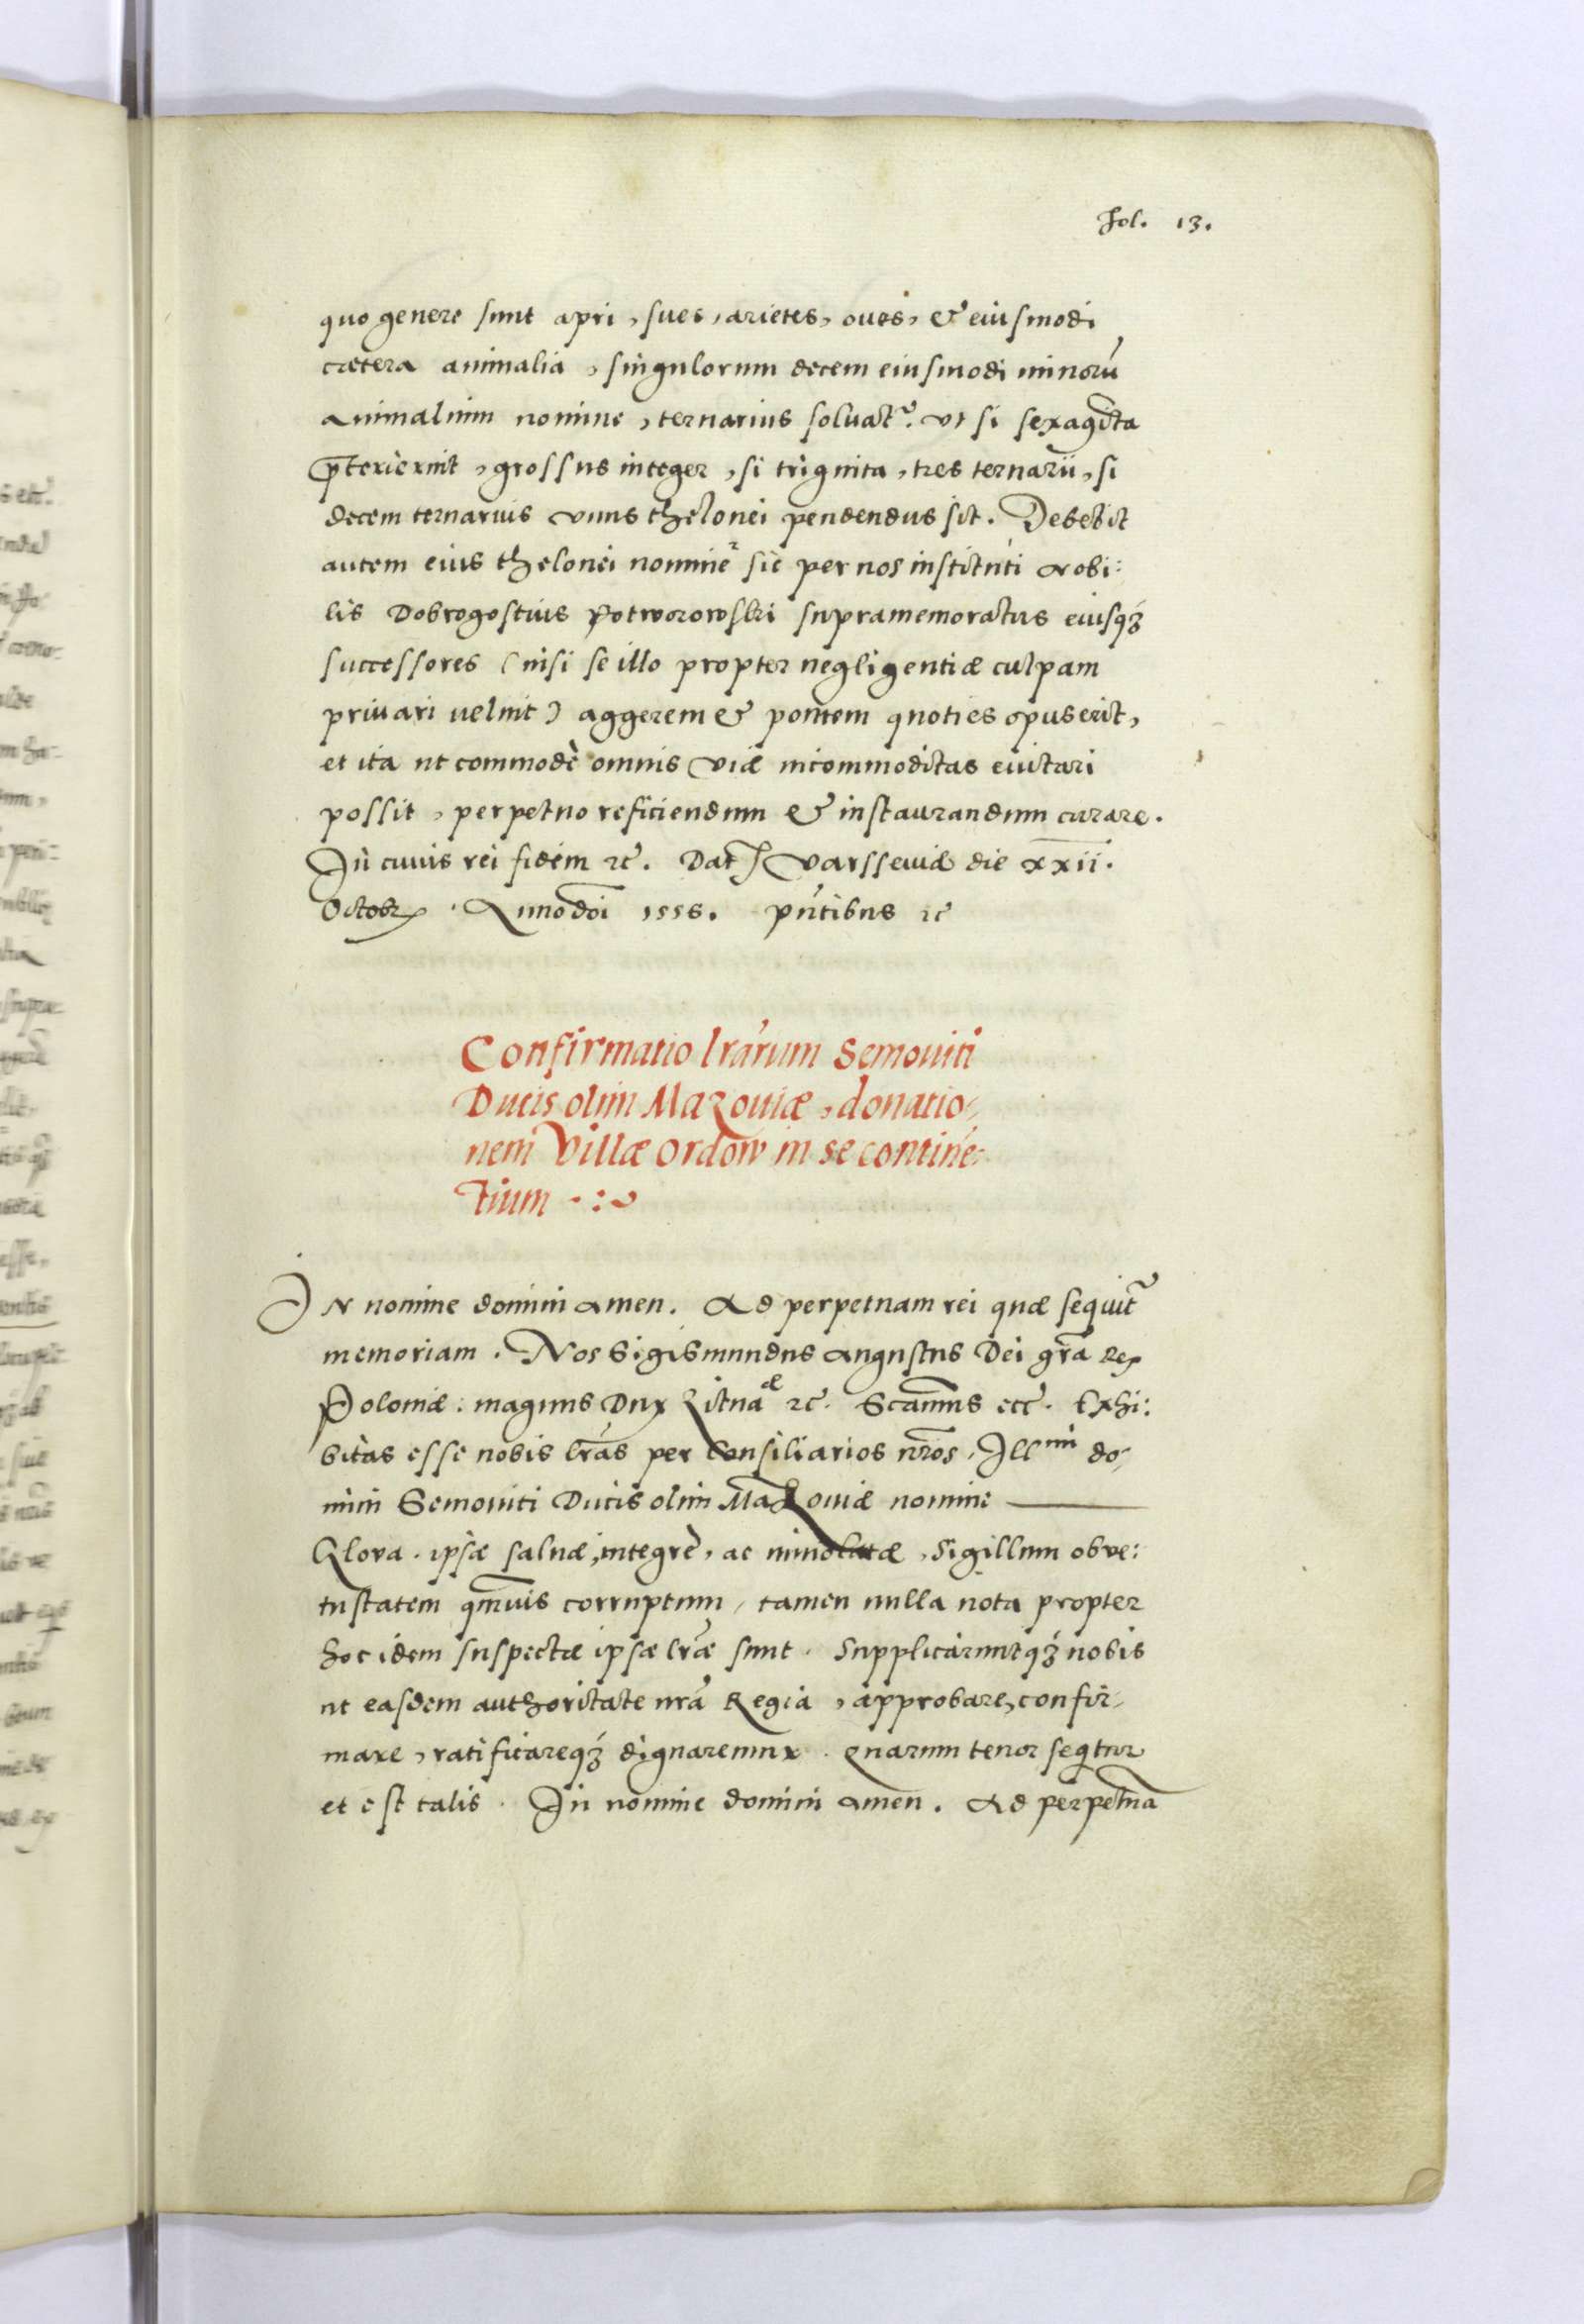 Fol. 13.
quo genere sunt apri, sues, arietes, oues, & eiusmodi
cætera animalia, singulorum decem eiusmodi minorū
animalium nomine, ternarius soluat᷑. vt si sexagīta
p̄terierint, grossus integer, si triginta, tres ternarii, si
decem ternarius vnus thelonei pendendus sit. Debebit
autem eius thelonei nomine sic per nos instituti Nobi:
lis Dobrogostius Potworowski supramemoratus eiusqꝫ
successores (nisi se illo propter negligentiæ culpam
priuari uelint) aggerem & pontem quoties opus erit,
et ita ut commodè omnis viæ incommoditas euitari
possit, perpetuo reficiendum & instaurandum curare.
In cuius rei fidem ꝛc̄. Dat̄ Varsseuiæ die xxii.
Octobr̄. Anno doī 1556. pn̄tibus ꝛc̄
Confirmatio lrārum Semouiti
Ducis olim Mazouiæ, donatio,
nem Villæ Ordow in se continē:
tium
In nomine domini amen. Ad perpetuam rei quæ sequit᷑
memoriam. Nos Sigismundus Augustus Dei grā Rex
Poloniæ: magnus Dux Litua᷑æ ꝛc̄. Scimus etc̄. Exhi:
bitas esse nobis lrās per Consiliarios nr̄os, Illmi do,
mini Semouiti Ducis olim Mazouiæ nomine
Qlora. ipsæ saluæ, integrè, ac inuiolatæ, Sigillum ob ve:
tustatem qm̄uis corruptum, tamen nulla nota propter
hoc idem suspectæ ipsæ lrǣ sunt. Supplicaruntqꝫ nobis
ut easdem authoritate nrā Regia, approbare, confir,
mare, ratificareqꝫ dignaremur. Quarum tenor seqitur
et est talis. In nomine domini amen. Ad perpetuā